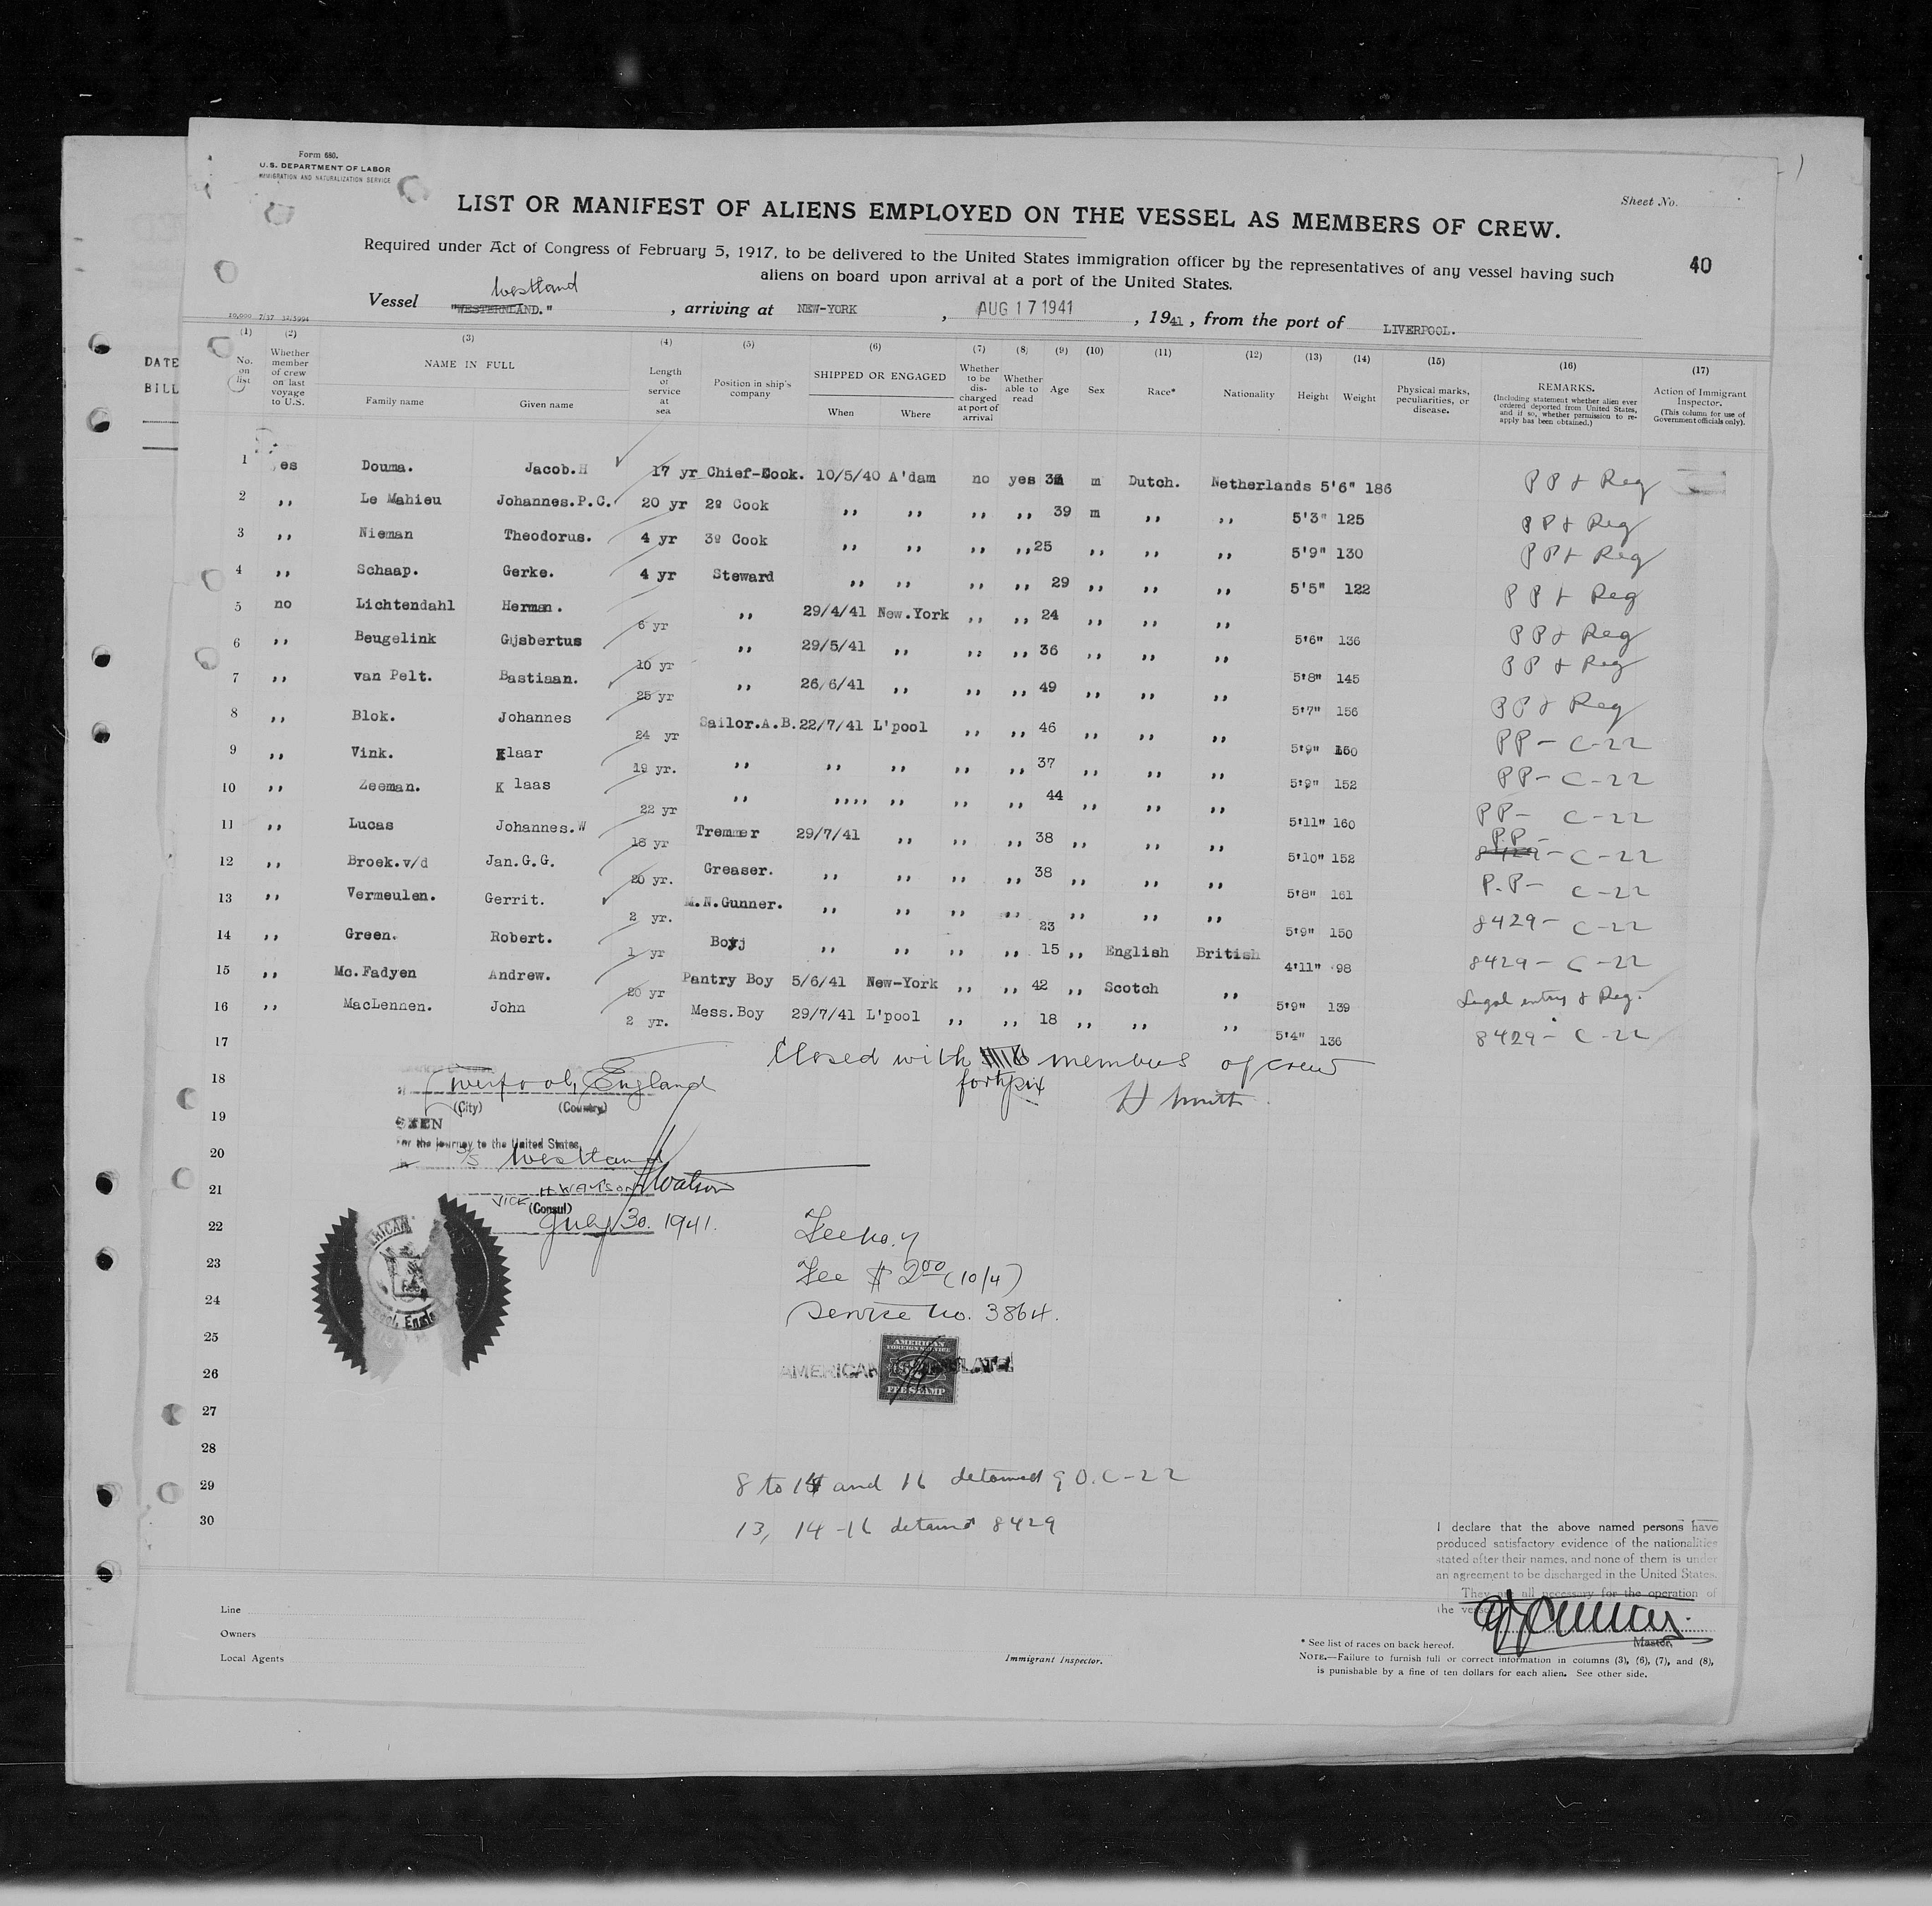 Form 680.
U.S. DEPARTMENT OF LABOR
IMMIGRATION AND NATURALIZATION SERVICE
Sheet No.
LIST OR MANIFEST OF ALIENS EMPLOYED ON THE VESSEL AS MEMBERS OF CREW.
Required under Act of Congress of February 5, 1917, to be delivered to the United States immigration officer by the representatives of any vessel having such
aliens on board upon arrival at a port of the United States.
40
Westland
Vessel "WESTERNLAND." , arriving at NEW-YORK , AUG 17 1941 , 1941, from the port of LIVERPOOL.
DATE
BILL
(1) (2) (3) (4) (5) (6) (7) (8) (9) (10) (11) (12) (13) (14) (15) (16) (17)
No. on list Whether member of crew on last voyage to U.S. NAME IN FULL Family name Given name Length of service at sea Position in ship's company SHIPPED OR ENGAGED When Where Whether to be discharged at port of arrival Whether able to read Age Sex Race* Nationality Height Weight Physical marks, peculiarities, or disease. REMARKS. (Including statement whether alien ever ordered deported from United States, and if so, whether permission to reapply has been obtained.) Action of Immigrant Inspector. (This column for use of Government officials only).
1 yes Douma. Jacob.H 17 yr Chief-Cook. 10/5/40 A'dam no yes m Dutch. Netherlands 5'6" 186 PP & Reg
2 ,, Le Mahieu Johannes.P.C. 20 yr 2º Cook ,, ,, ,, ,, 39 m ,, ,, 5'3" 125 PP & Reg
3 ,, Nieman Theodorus. 4 yr 3º Cook ,, ,, ,, ,, 25 ,, ,, ,, 5'9" 130 PP & Reg
4 ,, Schaap. Gerke. 4 yr Steward ,, ,, ,, ,, 29 ,, ,, ,, 5'5" 122 PP & Reg
5 no Lichtendahl Herman. 6 yr ,, 29/4/41 New.York ,, ,, 24 ,, ,, ,, 5'6" 136 PP & Reg
6 ,, Beugelink Gijsbertus 10 yr ,, 29/5/41 ,, ,, ,, 36 ,, ,, ,, 5'8" 145 PP & Reg
7 ,, van Pelt. Bastiaan. 25 yr ,, 26/6/41 ,, ,, ,, 49 ,, ,, ,, 5'7" 156 PP & Reg
8 ,, Blok. Johannes 24 yr Sailor.A.B. 22/7/41 L'pool ,, ,, 46 ,, ,, ,, 5'9" PP - C-22
9 ,, Vink. Klaar 19 yr. ,, ,, ,, ,, ,, 37 ,, ,, ,, 5'9" 152 PP - C-22
10 ,, Zeeman. Klaas 22 yr ,, ,,,, ,, ,, ,, 44 ,, ,, ,, 5'11" 160 PP - C-22
11 ,, Lucas Johannes.W 18 yr Tremmer 29/7/41 ,, ,, ,, 38 ,, ,, ,, 5'10" 152 PP - 8429 - C-22
12 ,, Broek.v/d Jan.G.G. 20 yr. Greaser. ,, ,, ,, ,, 38 ,, ,, ,, 5'8" 161 P.P - C-22
13 ,, Vermeulen. Gerrit. 2 yr. M.N.Gunner. ,, ,, ,, ,, 23 ,, ,, ,, 5'9" 150 8429 - C-22
14 ,, Green. Robert. 1 yr Boy ,, ,, ,, ,, 15 ,, English British 4'11" 98 8429 - C-22
15 ,, Mc.Fadyen Andrew. 20 yr Pantry Boy 5/6/41 New-York ,, ,, 42 ,, Scotch ,, 5'9" 139 Legal entry & Reg.
16 ,, MacLennen. John 2 yr. Mess.Boy 29/7/41 L'pool ,, ,, 18 ,, ,, ,, 5'4" 136 8429 - C-22
17
Closed with members of crew
fortysix
18
Liverpool, England
(City) (Country)
19
SEEN
For the journey to the United States
20
S/S Westland
21
H. WATSON HWatson
VICE (Consul)
22
July 30. 1941.
AMERICAN
23
24
25
26
27
28
29
30
Fee $ 2.00 (10/4)
Service No. 3864.
AMERICAN CONSULATE
AMERICAN
FOREIGN SERVICE
FEE STAMP
8 to 14 and 16 detained C-22
13, 14 - 16 detained 8429
I declare that the above named persons have
produced satisfactory evidence of the nationalities
stated after their names, and none of them is under
an agreement to be discharged in the United States.
They are all necessary for the operation of
the vessel
Master.
Line
Owners
Local Agents
Immigrant Inspector.
* See list of races on back hereof.
NOTE.—Failure to furnish full or correct information in columns (3), (6), (7), and (8),
is punishable by a fine of ten dollars for each alien. See other side.